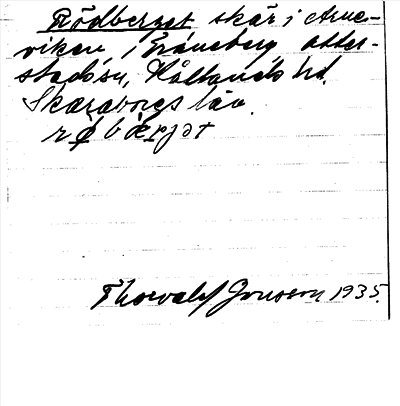 Rödberget skär i Arne-
viken, i Gräneberg, Otter-
stads sn, Kållands hd.
Skaraborgs län.
rø̨bærjət
Thorvald Jonsson 1935.